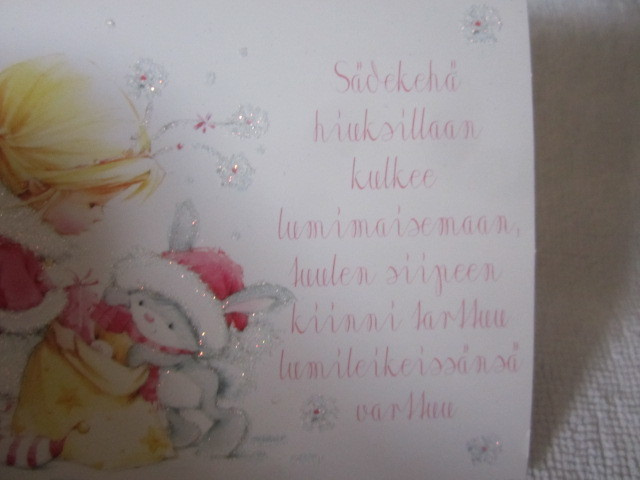 Sädekehä
hiuksillaan
kulkee
lumimaisemaan,
tuulen siipeen
kiinni tarttuu
lumileikeissänsä
varttuu